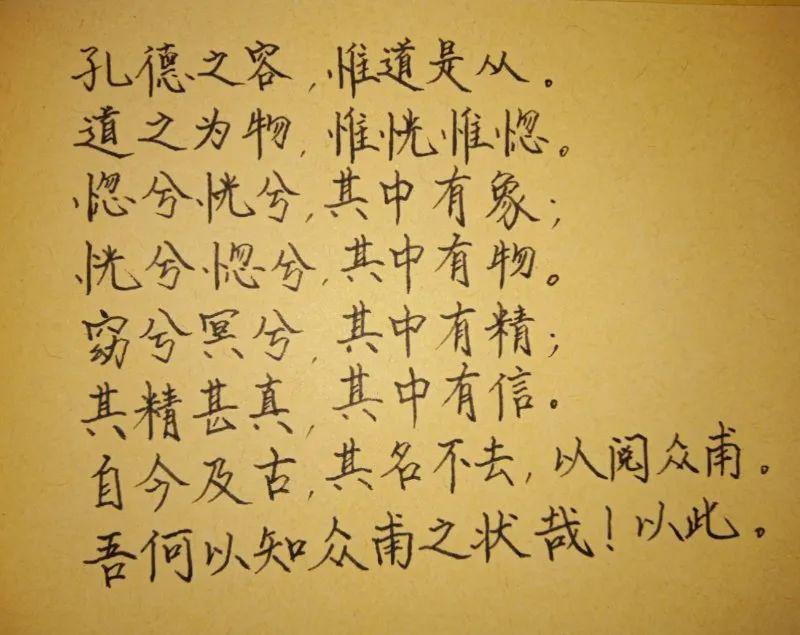 孔德之容,惟道是从。
道之为物,惟恍惟惚。
惚兮恍兮,其中有象;
恍兮惚兮,其中有物。
窈兮冥兮,其中有精;
其精甚真,其中有信。
自今及古,其名不去,以阅众甫。
吾何以知众甫之状哉!以此。